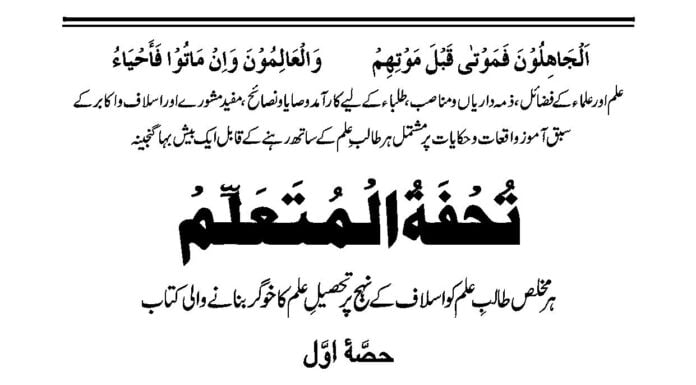 اَلْجَاهِلُوْنَ فَمَوْتٰى قَبْلَ مَوْتِهِمْ وَالْعَالِمُوْنَ وَاِنْ مَاتُوْا فَأَحْيَاءُ
علم اور علماء کے فضائل، ذمہ داریاں ومناصب، طلباء کے لیے کارآمد وصایا ونصائح، مفید مشورے اور اسلاف واکابر کے
سبق آموز واقعات وحکایات پر مشتمل ہر طالبِ علم کے ساتھ رہنے کے قابل ایک بیش بہا گنجینہ
تُحْفَةُ الْمُتَعَلِّمُ
ہر مخلص طالبِ علم کو اسلاف کے نہج پر تحصیلِ علم کا خوگر بنانے والی کتاب
حصّۂ اوّل